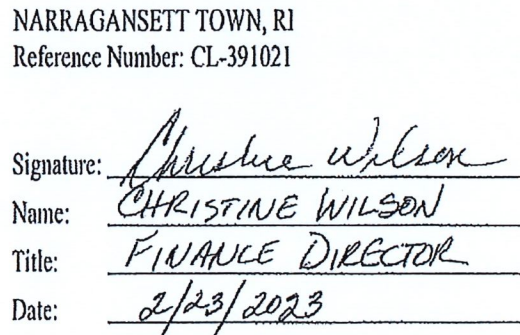 NARRAGANSETT TOWN, RI
Reference Number: CL-391021
Signature: Christine Wilson
Name: CHRISTINE WILSON
Title: FINANCE DIRECTOR
Date: 2/23/2023